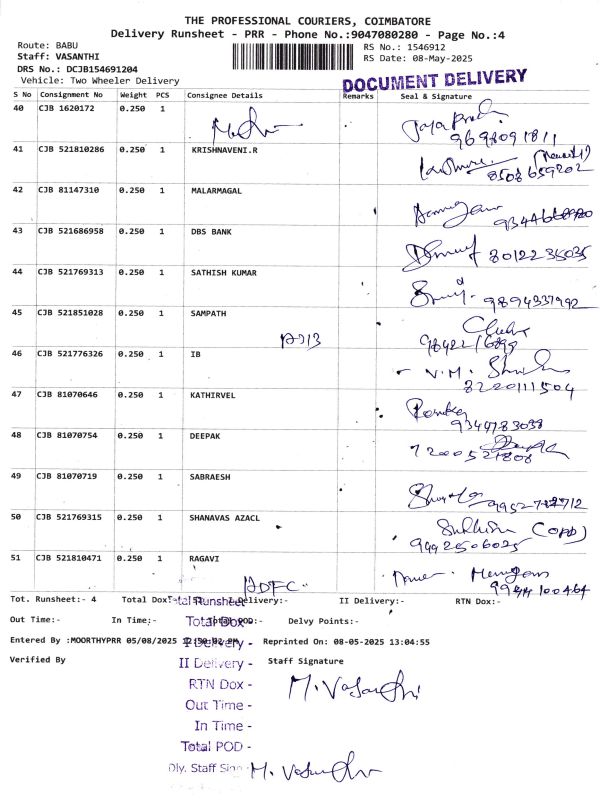 THE PROFESSIONAL COURIERS, COIMBATORE
Delivery Runsheet - PRR - Phone No.:9047080280 - Page No.:4
Route: BABU
Staff: VASANTHI
RS No.: 1546912
DRS No.: DCJB154691204
RS Date: 08-May-2025
Vehicle: Two Wheeler Delivery
DOCUMENT DELIVERY
S No Consignment No Weight PCS Consignee Details Remarks Seal & Signature
40 CJB 1620172 0.250 1
9698091811
41 CJB 521810286 0.250 1 KRISHNAVENI.R
8508659202
42 CJB 81147310 0.250 1 MALARMAGAL
43 CJB 521686958 0.250 1 DBS BANK
8012235035
44 CJB 521769313 0.250 1 SATHISH KUMAR
9894337992
45 CJB 521851028 0.250 1 SAMPATH
46 CJB 521776326 0.250 1 IB
V.M.
8220111504
47 CJB 81070646 0.250 1 KATHIRVEL
9344783038
48 CJB 81070754 0.250 1 DEEPAK
7200521808
49 CJB 81070719 0.250 1 SABRAESH
50 CJB 521769315 0.250 1 SHANAVAS AZACL
9942506025
51 CJB 521810471 0.250 1 RAGAVI
Tot. Runsheet:- 4 Total Dox I Delivery:- II Delivery:- RTN Dox:-
Out Time:- In Time:- Total POD:- Delvy Points:-
Entered By :MOORTHYPRR 05/08/2025 Reprinted On: 08-05-2025 13:04:55
Verified By Staff Signature
Total Runsheet
Total Dox -
I Delivery -
II Delivery -
RTN Dox -
Out Time -
In Time -
Total POD -
Dly. Staff Sign
M. Vasanthi
M. Vasanthi